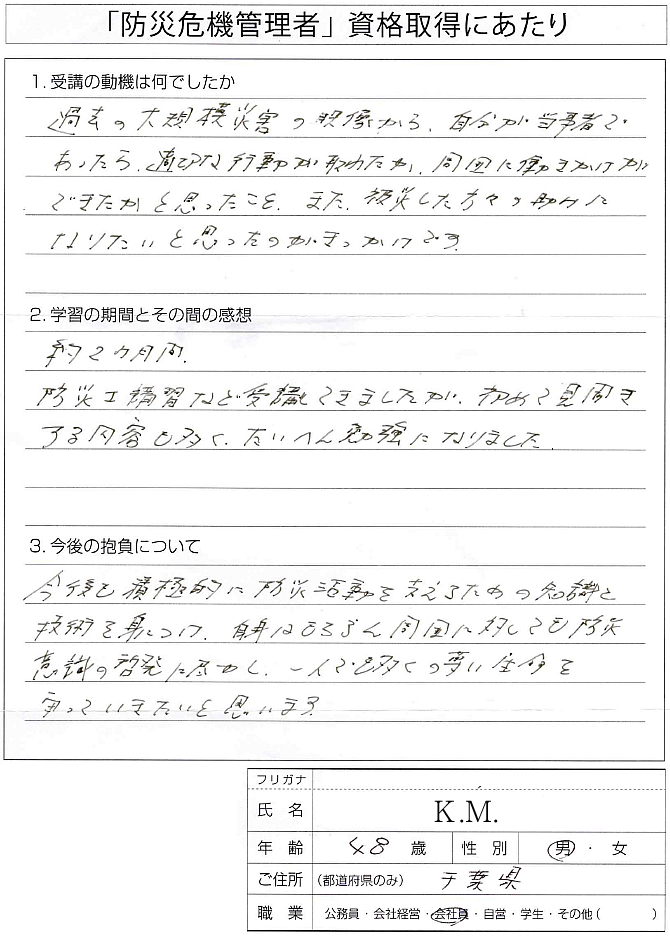 「防災危機管理者」資格取得にあたり
1. 受講の動機は何でしたか
過去の大規模災害の映像から、自分が当事者で
あったら、適切な行動が取れたか、周囲に働きかけが
できたかと思ったこと、また、被災した方々の助けに
なりたいと思ったのがきっかけです。
2. 学習の期間とその間の感想
約2カ月間。
防災士講習なども受講してきましたが、初めて見聞き
する内容も多く、たいへん勉強になりました。
3. 今後の抱負について
今後も積極的に防災活動を支えるための知識と
技術を身につけ、自身はもちろん周囲に対しても防災
意識の啓発に尽力し、一人でも多くの尊い生命を
守っていきたいと思います。
フリガナ
氏 名 K.M.
年 齢 48 歳 性 別 男 ・ 女
ご住所 (都道府県のみ) 千葉県
職 業 公務員・会社経営・会社員・自営・学生・その他( )